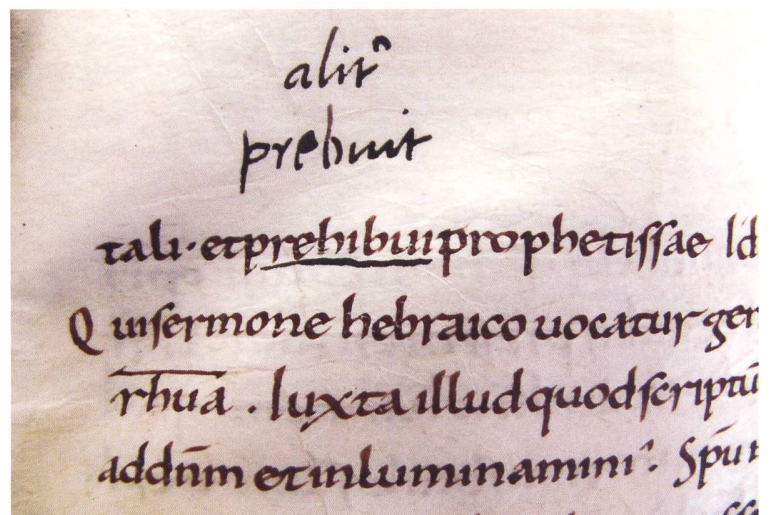 alit᷑
prebuit
tali · et prehibui prophetissae Id
Qui sermone hebraico uocatur ger
rhūa . Iuxta illud quod scriptū
ad dn̄m et inluminamini · Spū